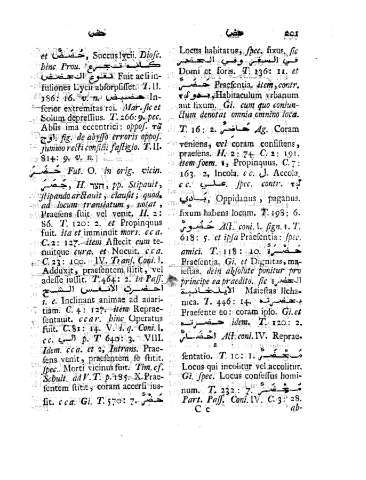 حضض
حضر
201
et حُضُضٌ, Succus lycii. Diosc.
hinc Prov. 
Fuit acsi in-
fusiones Lycii absorpsisset. T. II.
186: 16. v. n. حضيض In-
ferior extremitas rei. Mar. sic et
Solum depressius. T. 266: 9. spec.
Absis ima eccentrici: oppos. τῷ
اوج fig. de abysso erroris opposi-
summo recti consilii fastigio. T. II.
814: 9. v. n.
حضر Fut. O. in orig. vicin.
H חצר, pp. Stipauit,
stipando arctauit, clausit; quod,
ad locum translatum, notat,
Praesens fuit vel venit. H. 2:
86. T. 120: 2. et Propinquus
fuit. Ita et imminuit mors. cca.
C. 2: 127. item Affecit cum te-
nuitque cura, et Nocuit. cca.
C. 23: 100. IV. Tran. Conj. I.
Adduxit, praesentem stitit, vel
adesse iussit. T. 464: 2. in Pass.
احضرت الانفس الشح
i. e. Inclinant animae ad auari-
tiam. C. 4: 127. item Reprae-
sentauit. ccar. hinc Operatus
fuit. C. 81: 14. V. i. q. Conj. I.
cc. الى p. T 640: 3. VIII.
Idem. cca. et 2, Intrans. Prae-
sens venit, praesentem se stitit.
spec. Morti vicinus fuit. Tim. ef.
Schult. ad V. T. p. 185. X. Prae-
sentem stitit, coram accersi ius-
sit. cca. Gi. T. 570: 7. حَضَرٌ
Locus habitatus, spec. fixus, sic
في السفر وفي الحضر
Domi et foris. T. 136: 11. et
حضرة Praesentia. item, contr.
بدو, Habitaculum vrbanum
aut fixum. Gi. cum quo coniun-
ctum denotat omnia omnino loca.
T. 16: 2. حاضر Ag. Coram
veniens, evl coram consistens,
praesens. H. 2: 74. C. 2: 191.
item foem. 1, Propinquus. C. 7:
163. 2, Incola. cc. J. Accola.
cc. على. spec. contr. بادي
Oppidanus, paganus,
fixum habens locum. T. 198: 6.
حضور Act. conj. I. sign. 1. T.
618: 5. et ipsa Praesentia: spec.
amici. T. 118: 10. حضرة
Praesentia. Gi. et Dignitas, ma-
iestas, dein absolute ponitur pro
principe ea praedito. sic الحضرة
Maiestas Ilcha-
nica. T. 446: 14. بحضرته
Praesente eo: coram ipso. Gi. et
حضرته idem. T. 120: 2.
احضار Act. conj. IV. Reprae-
sentatio. T. 10: 1. محضر
Locus qui incolitur vel accolitur.
Gi. spec. Locus consessus homi-
num. T. 232: 7. محضر
Part. Pass. Conj. IV. C. 3: 28.
C c
ab-